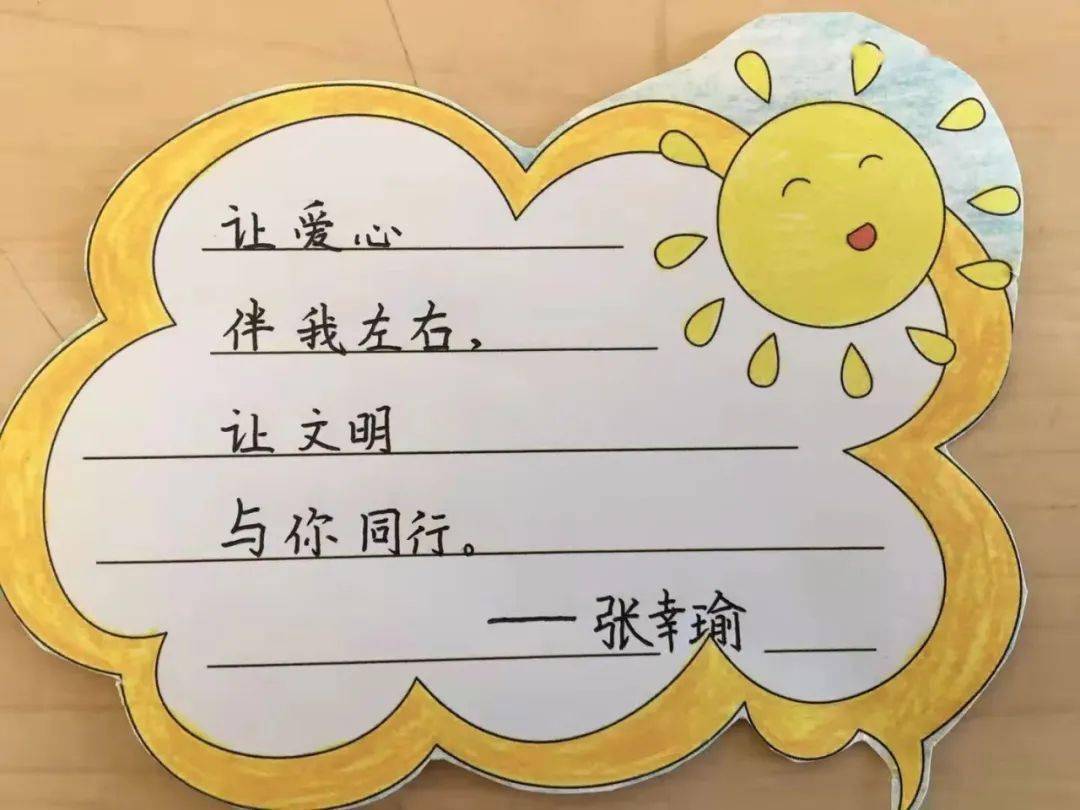 让爱心
伴我左右,
让文明
与你同行。
——张幸瑜